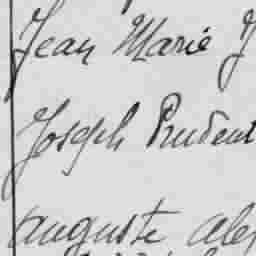 Jean Marie J
Joseph Prudent
auguste ale